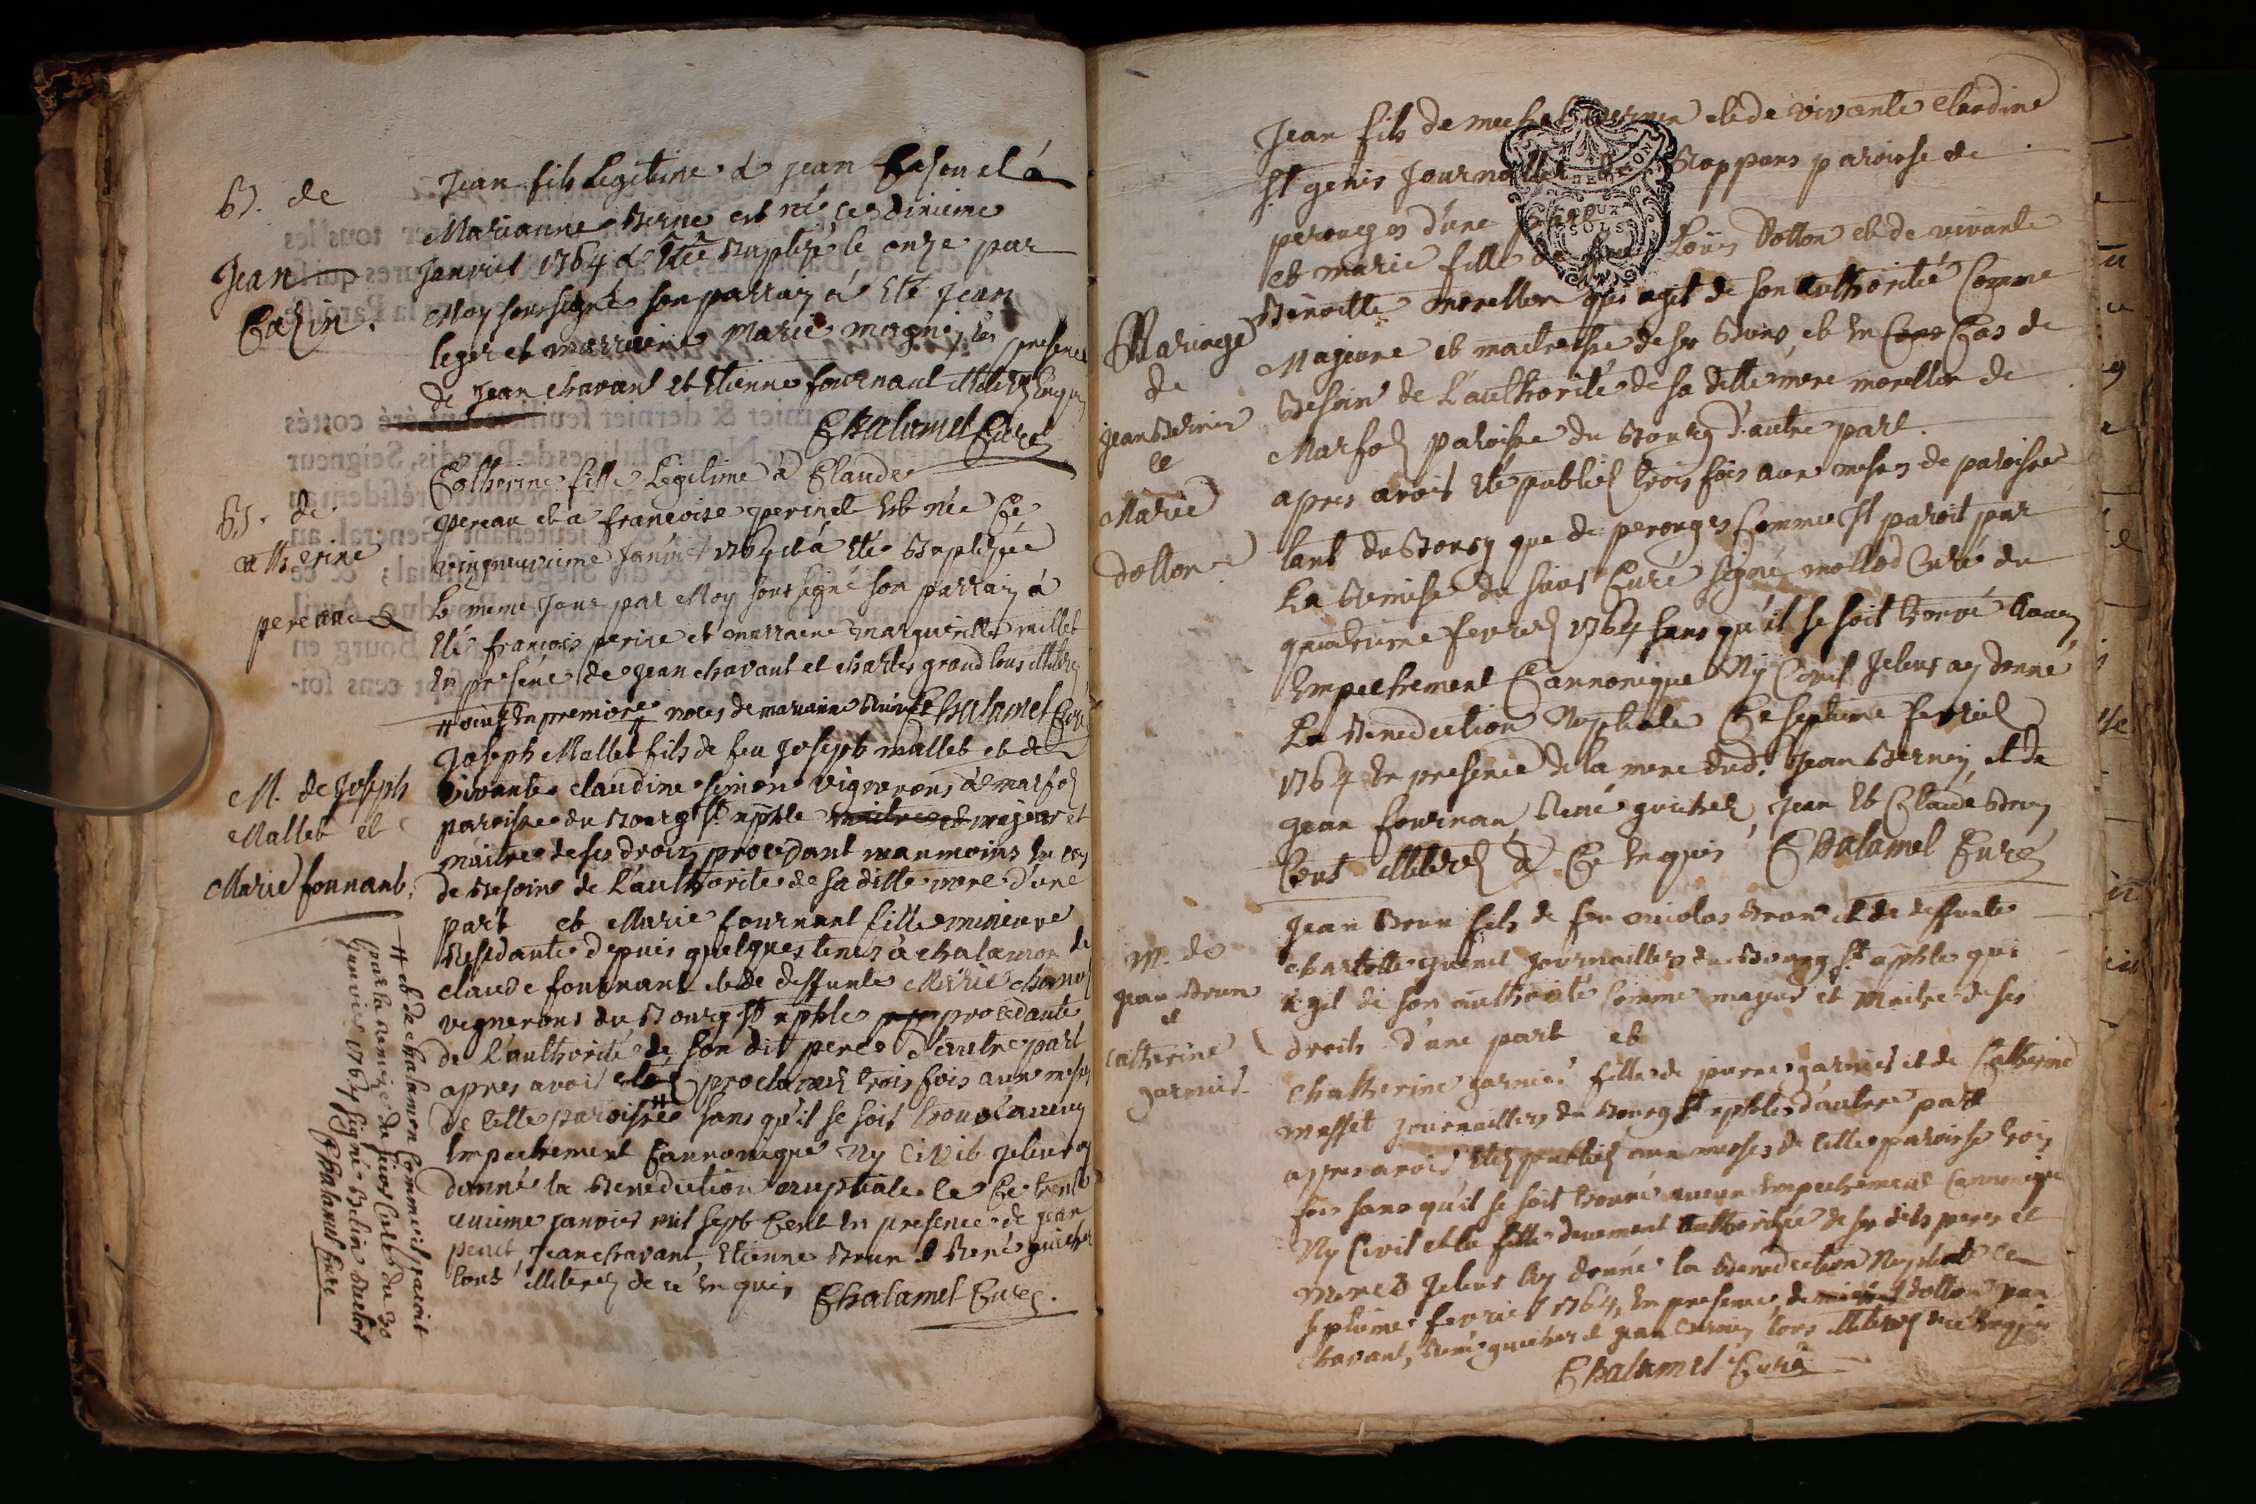 B. de
Jean
Cazin.
Jean fils Legitime à jean Cazin et à
Marianne Berne est né ce dixieme
Janvier 1764 à été Baptisé le onze par
Moy soussigné son parrain à Eté Jean
leger et marraine Marie magnin, en presence
de jean chavant et Etienne fournant illiteréz Enquis
Chalamel Curé
B. de
catherine
pereau
Catherine fille Legitime à Claude
pereau et a francoise perinet est née Ce
vingneuvieme Janvier 1764 et à été Baptizée
Le meme Jour par Moy soussigné son parrain à
Eté francois perire et marraine marguerite millet
En présence de jean chavant et charles grand tous illiteréz
Chalamel Curé
# veuf En premiere noces de marianne
M. de Joseph
Mallet et
Marie fournant.
Joseph Mallet fils de feu Joseph mallet et de
vivante claudine simon vignerons de marfoz
paroisse du Bourg St xphle maitre et majeur et
maitre de ses droits procedant neanmoins En cas
de Besoins de L'authorité de sa ditte mere d'une
part et Marie fournant fille mineure
Residante depuis quelques tems à chalamon de
claude fournant et de deffunte Marie
vignerons du Bourg St xphle procedante
de L'authorité de son dit pere d'autre part
apres avoir été proclaméz trois fois aux messes
de cette paroisse # sans qu'il se soit trouvé aucun
Empechement Cannonique Ny Civil Je leur ay
donné la Benediction nuptiale le Ce trente
unieme janvier mil sept Cent En presence de jean
peret, Jean chavant, Etienne Brun & René guichel
tous illiteréz de ce Enquis Chalamel Curé.
# et de chalamon Comme il paroit
par la remise du sieur Curé du 30
Janvier 1764 signé Belin
Chalamel Curé
Mariage
de
jean Bernin
et
Marie
dotton
Jean fils de michel Bernin et de vivante Claudine
St genis Journaliers de Rappans paroisse de
perouges d'une part
et marie fille de feu Loüis Dotton et de vivante
Benoitte morellon qui agit de son authorité Comme
Majeure et maitresse de ses Biens, et En Cas de
Besoin de L'authorité de sa ditte mere morellon de
Marfoz paroisse du Bourg d'autre part.
apres avoir été publiéz trois fois aux messes de paroisse
tant du Bourg que de perouges Comme Il paroit par
La Remise du sieur Curé signé mollod Curé du
quatrieme fevrier 1764 sans qu'il se soit trouvé aucun
Empechement Cannonique Ny Civil Je leur ay donné
La Benediction Nuptiale Ce septieme fevrier
1764 En presence de la mere dud. Jean Bernin, et de
jean fournan, René guichel, jean Et Claude Brun
tous illiteréz de Ce Enquis Chalamel Curé
M. de
jean Brun
et
catherine
garnier
Jean Brun fils de feu nicolas Brun et de deffunte
journaillers du Bourg St xphle qui
agit de son authorité Comme majeur et Maitre de ses
droits d'une part et
Chatherine garnier fille de pierre garnier et de Catherine
maffet journaillers du Bourg St xphle d'autre part
apres avoir Etéz publiéz aux messes de cette paroisse trois
fois sans qu'il se soit trouvé aucun Empechement Cannonique
Ny Civil et la fille deuement authorisée de ses dits peres et
meres Je leur Ay donné la Benediction Nuptiale ce
septieme fevrier 1764, En presence de dotton jean
chavant, René guichel et jean bernin tous illiteréz de ce Enquis
Chalamel Curé
DEUX
SOLS